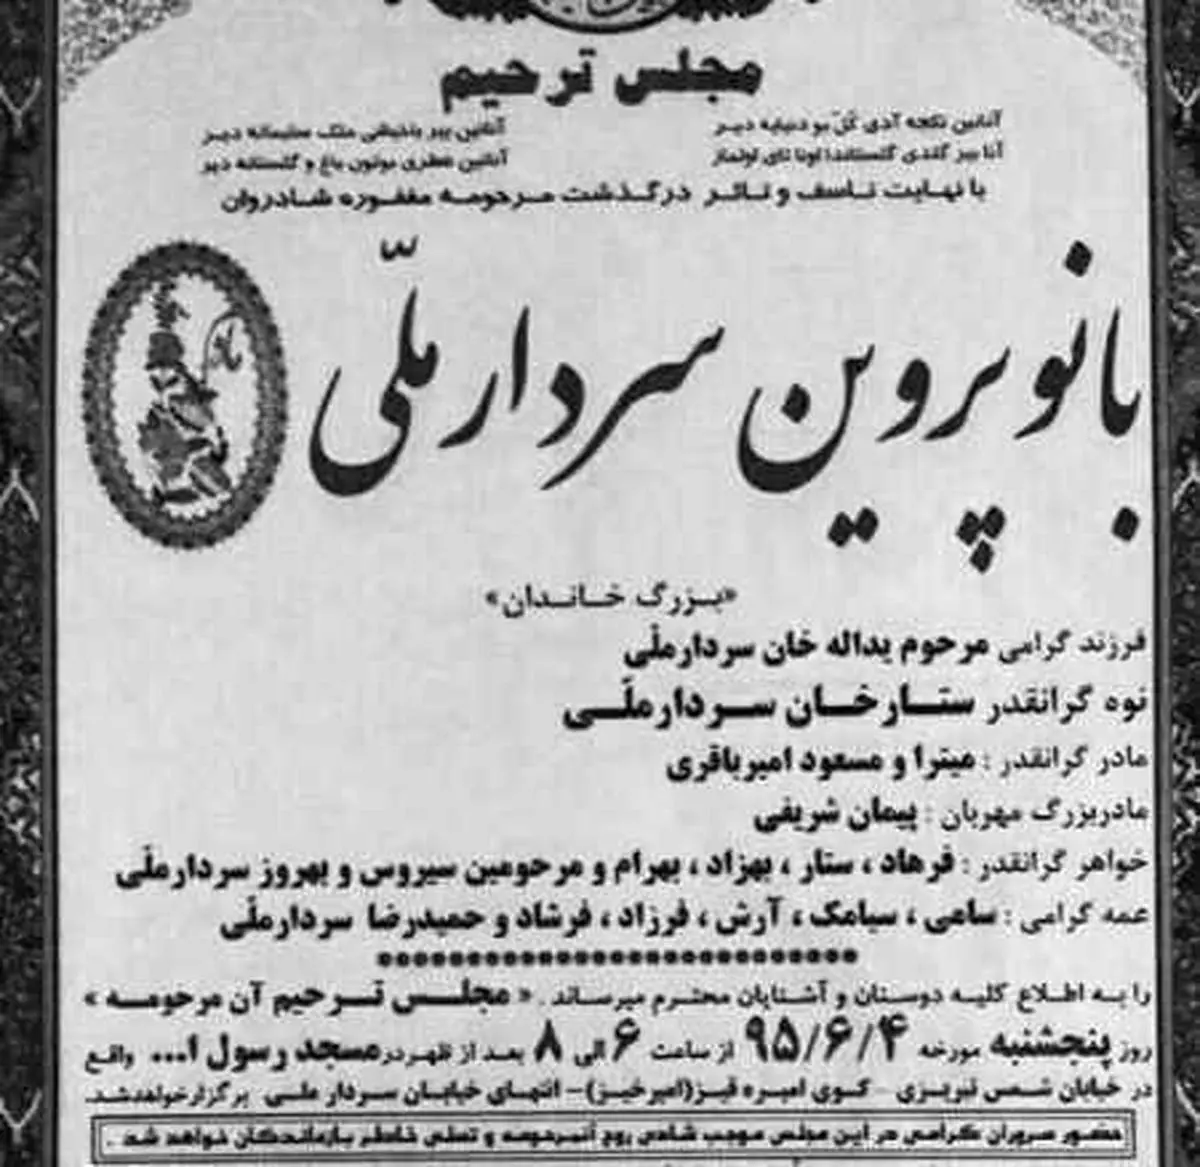 مجلس ترحیم
با نهایت تاسف و تاثر درگذشت مرحومه مغفوره شادروان
بانو پروین سردار ملّی
«بزرگ خاندان»
فرزند گرامی مرحوم یداله خان سردارملّی
نوه گرانقدر ستارخان سردارملّی
مادر گرانقدر : میترا و مسعود امیرباقری
مادربزرگ مهربان : پیمان شریفی
خواهر گرانقدر : فرهاد ، ستار ، بهزاد ، بهرام و مرحومین سیروس و بهروز سردارملّی
عمه گرامی : ساعی ، سیامک ، آرش ، فرزاد ، فرشاد و حمیدرضا سردارملّی
را به اطلاع کلیه دوستان و آشنایان محترم میرساند . « مجلس ترحیم آن مرحومه »
روز پنجشنبه مورخه ۹۵/۶/۴ از ساعت ۶ الی ۸ بعد از ظهر در مسجد رسول ا... واقع
در خیابان شمس تبریزی - کوی امیره قیز(امیرخیز)- انتهای خیابان سردار ملی برگزار خواهد شد.
حضور سروران گرامی در این مجلس موجب شادی روح آنمرحومه و تسلی خاطر بازماندگان خواهد شد .